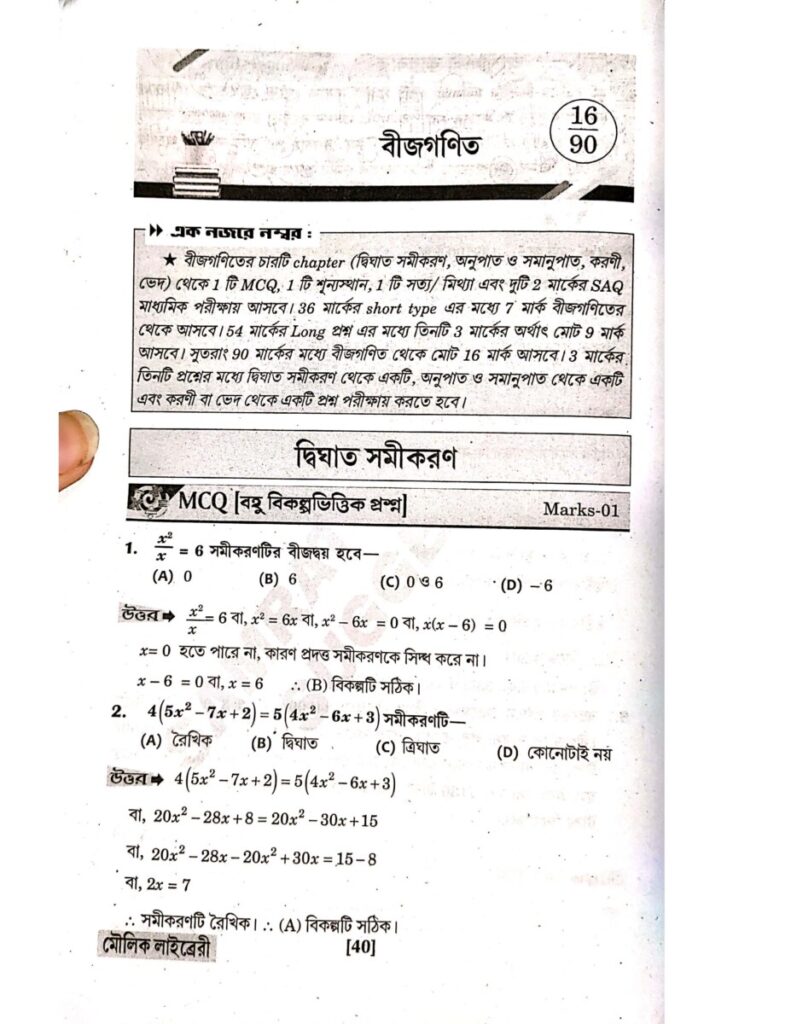 বীজগণিত
16
90
একনজরে নম্বর :
★ বীজগণিতের চারটি chapter (দ্বিঘাত সমীকরণ, অনুপাত ও সমানুপাত, করণী,
ভেদ) থেকে 1 টি MCQ, 1 টি শূন্যস্থান, 1 টি সত্য/ মিথ্যা এবং দুটি 2 মার্কের SAQ
মাধ্যমিক পরীক্ষায় আসবে। 36 মার্কের short type এর মধ্যে 7 মার্ক বীজগণিতের
থেকে আসবে। 54 মার্কের Long প্রশ্ন এর মধ্যে তিনটি 3 মার্কের অর্থাৎ মোট 9 মার্ক
আসবে। সুতরাং 90 মার্কের মধ্যে বীজগণিত থেকে মোট 16 মার্ক আসবে। 3 মার্কের
তিনটি প্রশ্নের মধ্যে দ্বিঘাত সমীকরণ থেকে একটি, অনুপাত ও সমানুপাত থেকে একটি
এবং করণী বা ভেদ থেকে একটি প্রশ্ন পরীক্ষায় করতে হবে।
দ্বিঘাত সমীকরণ
MCQ [বহু বিকল্পভিত্তিক প্রশ্ন] Marks-01
1. x²/x = 6 সমীকরণটির বীজদ্বয় হবে—
(A) 0 (B) 6 (C) 0 ও 6 (D) – 6
উত্তর ➡ x²/x = 6 বা, x² = 6x বা, x² – 6x = 0 বা, x(x – 6) = 0
x= 0 হতে পারে না, কারণ প্রদত্ত সমীকরণকে সিদ্ধ করে না।
x – 6 = 0 বা, x = 6 ∴ (B) বিকল্পটি সঠিক।
2. 4(5x² – 7x + 2) = 5(4x² – 6x + 3) সমীকরণটি—
(A) রৈখিক (B) দ্বিঘাত (C) ত্রিঘাত (D) কোনোটাই নয়
উত্তর ➡ 4(5x² – 7x + 2) = 5(4x² – 6x + 3)
বা, 20x² – 28x + 8 = 20x² – 30x + 15
বা, 20x² – 28x – 20x² + 30x = 15 – 8
বা, 2x = 7
∴ সমীকরণটি রৈখিক। ∴ (A) বিকল্পটি সঠিক।
মৌলিক লাইব্রেরী [40]